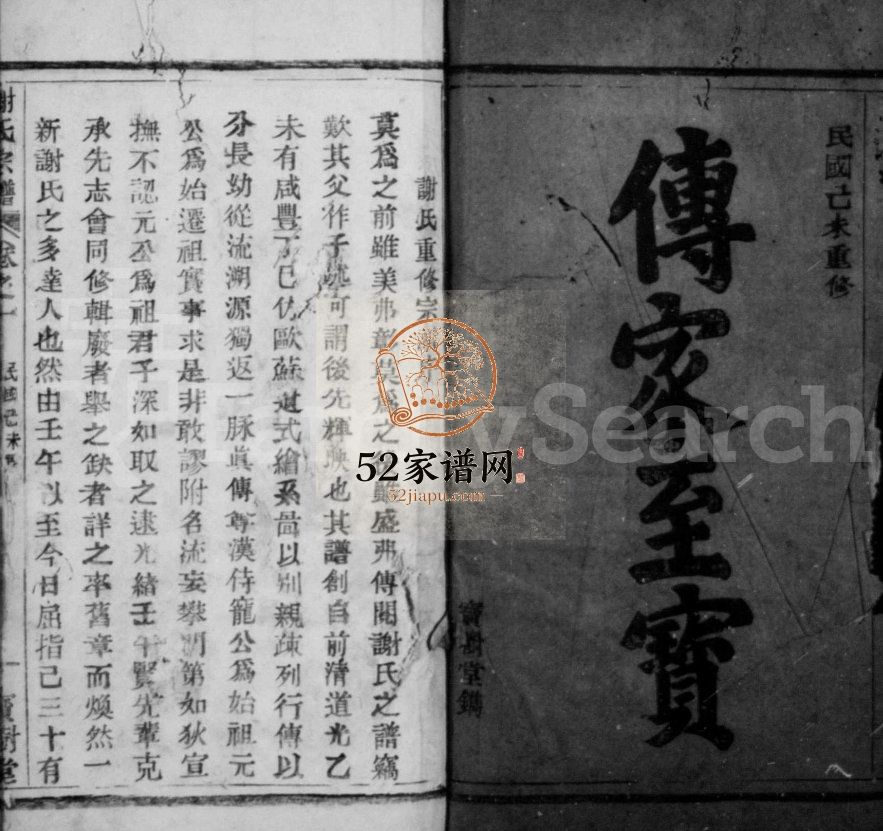 民國己未重修
傳家至寶
寶樹堂鐫
謝氏重修宗
莫爲之前雖美弗彰莫爲之雖盛弗傳閱謝氏之譜竊
歎其父作子述可謂後先輝映也其譜創自前清道光乙
未有咸豐丁巳仿歐蘇遺式繪系啚以別親疎列行傳以
分長幼從流溯源獨返一脉眞傳尊漢侍寵公爲始祖元
公爲始遷祖實事求是非敢謬附名流妄攀朋第如狄宣
撫不認元公爲祖君子深如取之逮光緒壬午賢先輩克
承先志會同修輯廢者舉之缺者詳之率舊章而煥然一
新謝氏之多達人也然由壬午以至今日屈指已三十有
謝氏宗譜
卷之一
民國己未
寶樹堂
FamilySearch
52家谱网
52jiapu.com